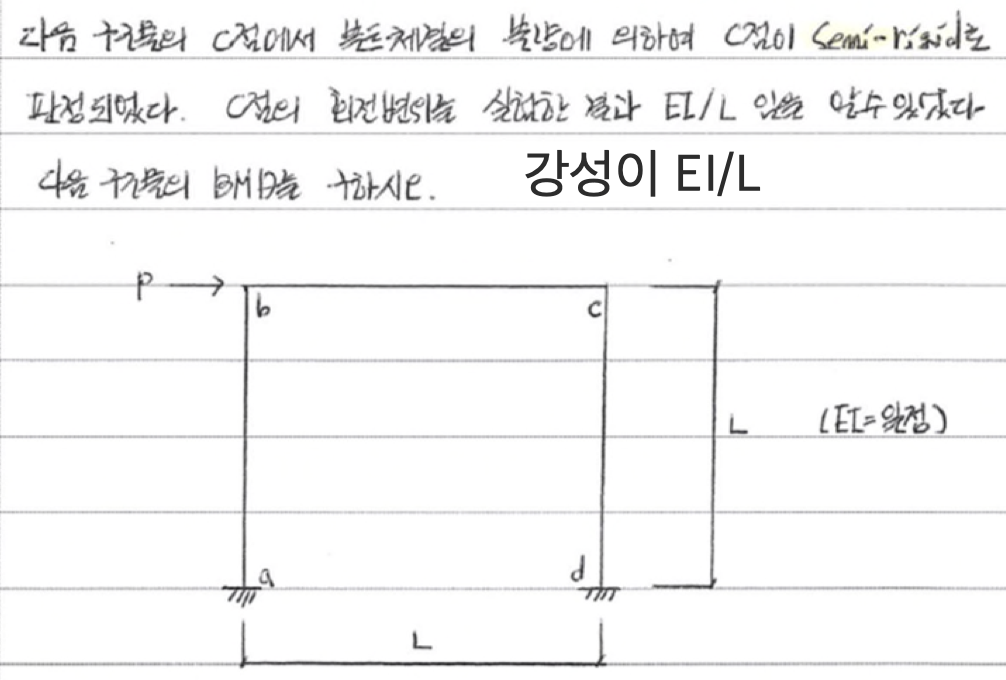 다음 구조물의 C점에서 볼트체결의 불량에 의하여 C점이 Semi-rigid로
판정되었다. C점의 회전변위를 실험한 결과 EI/L 임을 알수있었다
다음 구조물의 BMD를 구하시오. 강성이 EI/L
P
b
c
L
(EI=일정)
a
d
L